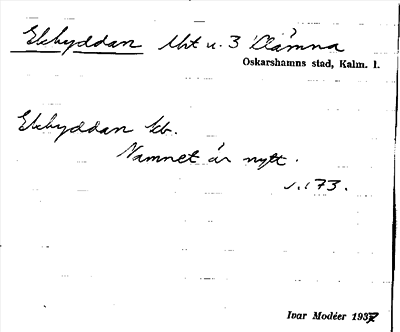 Ekhyddan lht u. 3 Klämna
Oskarshamns stad, Kalm. l.
Ekhyddan lb.
Namnet är nytt.
s. 173.
Ivar Modéer 1937